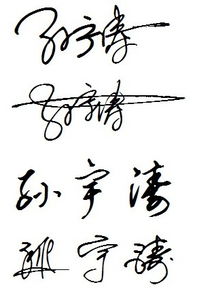 孙宇涛
孙宇涛
孙宇涛
孙宇涛